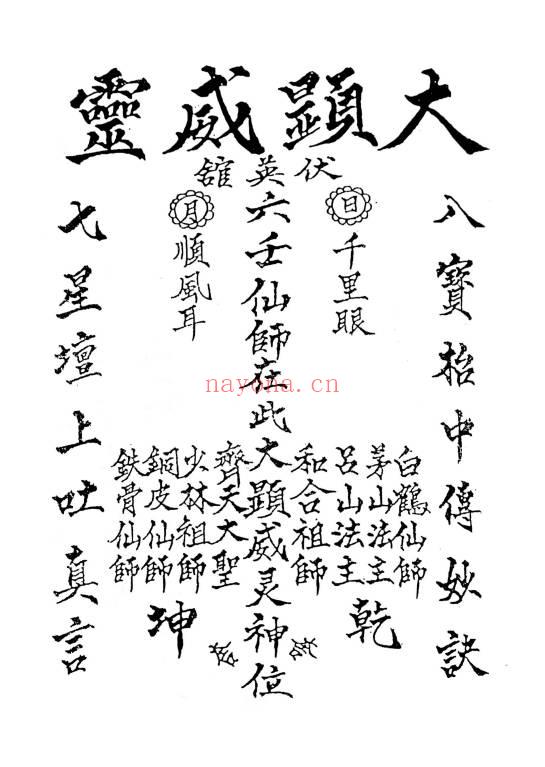 大顕威靈
伏英舘
八寳枱中傳妙訣
日
千里眼
六壬仙師在此大顕威灵神位
月
順風耳
七星壇上吐真言
白鶴仙師
茅山法主
呂山法主
和合祖師
齊天大聖
少林祖師
銅皮仙師
鉄骨仙師
乾
坤
nayona.cn